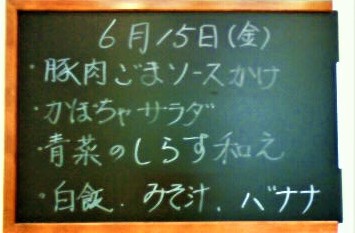 6月15日(金)
・豚肉ごまソースかけ
・かぼちゃサラダ
・青菜のしらす和え
・白飯.みそ汁.バナナ